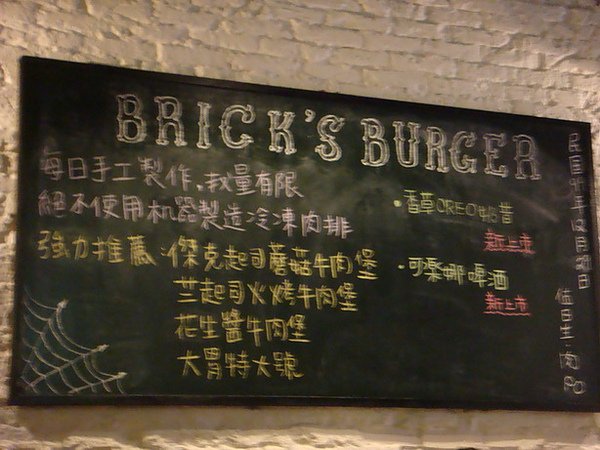 BRICK'S BURGER
每日手工製作,數量有限
絕不使用机器製造冷凍肉排
強力推薦:傑克起司蘑菇牛肉堡
芝起司火烤牛肉堡
花生醬牛肉堡
大胃特大號
·香草OREO奶昔
新上市
·可樂哪啤酒
新上市
值日生:肉PO